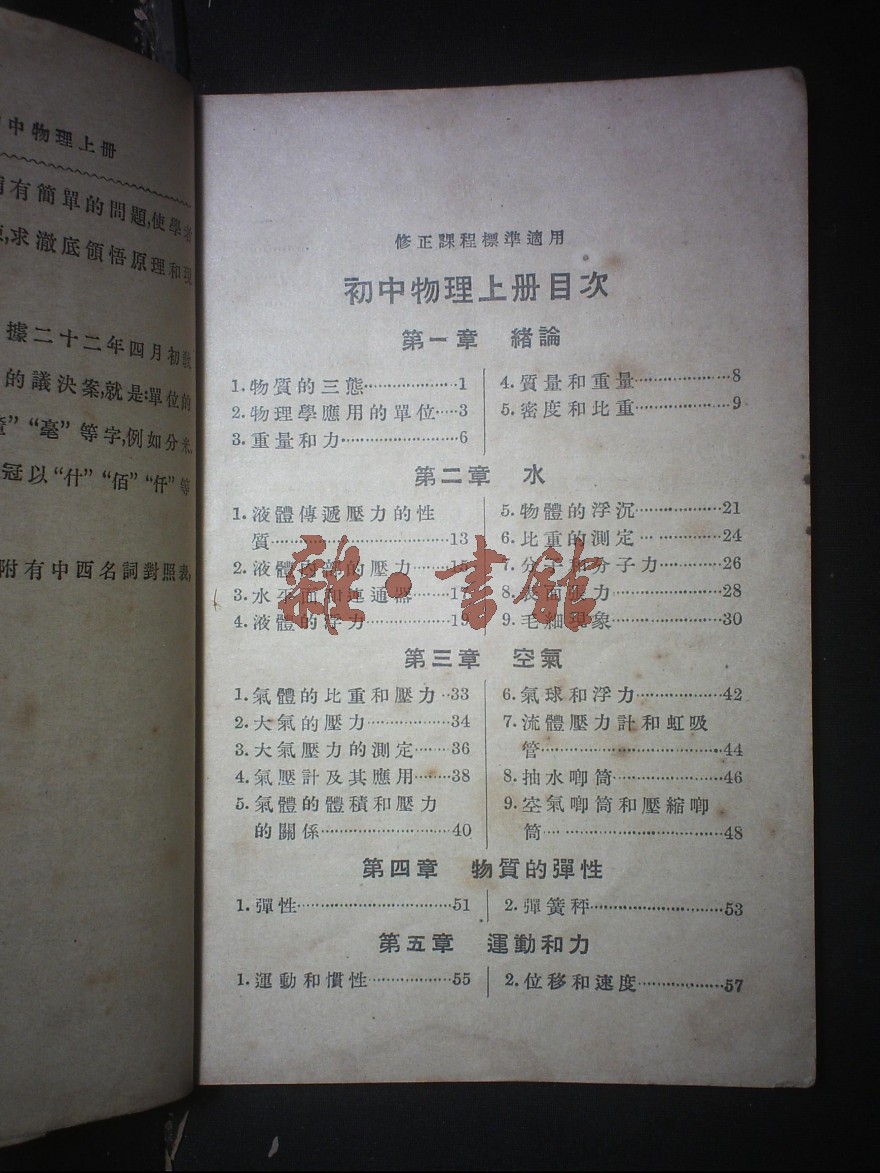 初中物理上册
有簡單的問題,使學者
求澈底領悟原理和現
據二十二年四月初敎
的議決案,就是:單位的
”“毫”等字,例如分米
冠以“什”“佰”“仟”等
附有中西名詞對照表,
修正課程標準適用
初中物理上册目次
第一章 緒論
1.物質的三態…………………1
2.物理學應用的單位……3
3.重量和力………………………6
4.質量和重量…………………8
5.密度和比重…………………9
第二章 水
1.液體傳遞壓力的性
質………………………………13
2.液體內部的壓力……15
3.水平面和連通器……1
4.液體的浮力……………1
5.物體的浮沉………………21
6.比重的測定………………24
7.分子和分子力……………26
8.表面張力…………………28
9.毛細現象…………………30
第三章 空氣
1.氣體的比重和壓力…33
2.大氣的壓力………………34
3.大氣壓力的測定………36
4.氣壓計及其應用………38
5.氣體的體積和壓力
的關係………………………40
6.氣球和浮力………………42
7.流體壓力計和虹吸
管………………………………44
8.抽水唧筒…………………46
9.空氣唧筒和壓縮唧
筒………………………………48
第四章 物質的彈性
1.彈性…………………………51
2.彈簧秤………………………53
第五章 運動和力
1.運動和慣性………………55
2.位移和速度………………57
雜·書館